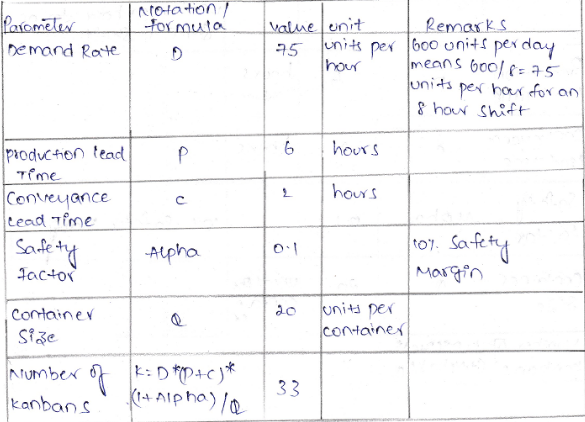 Parameter Notation / Formula value unit Remarks
Demand Rate D 75 units per hour 600 units per day
means 600/8 = 75
units per hour for an
8 hour shift
production lead Time P 6 hours
Conveyance Lead Time C 2 hours
Safety Factor Alpha 0.1 10% Safety Margin
Container Size Q 20 units per container
Number of Kanbans K = D*(P+C)* (1+Alpha)/Q 33